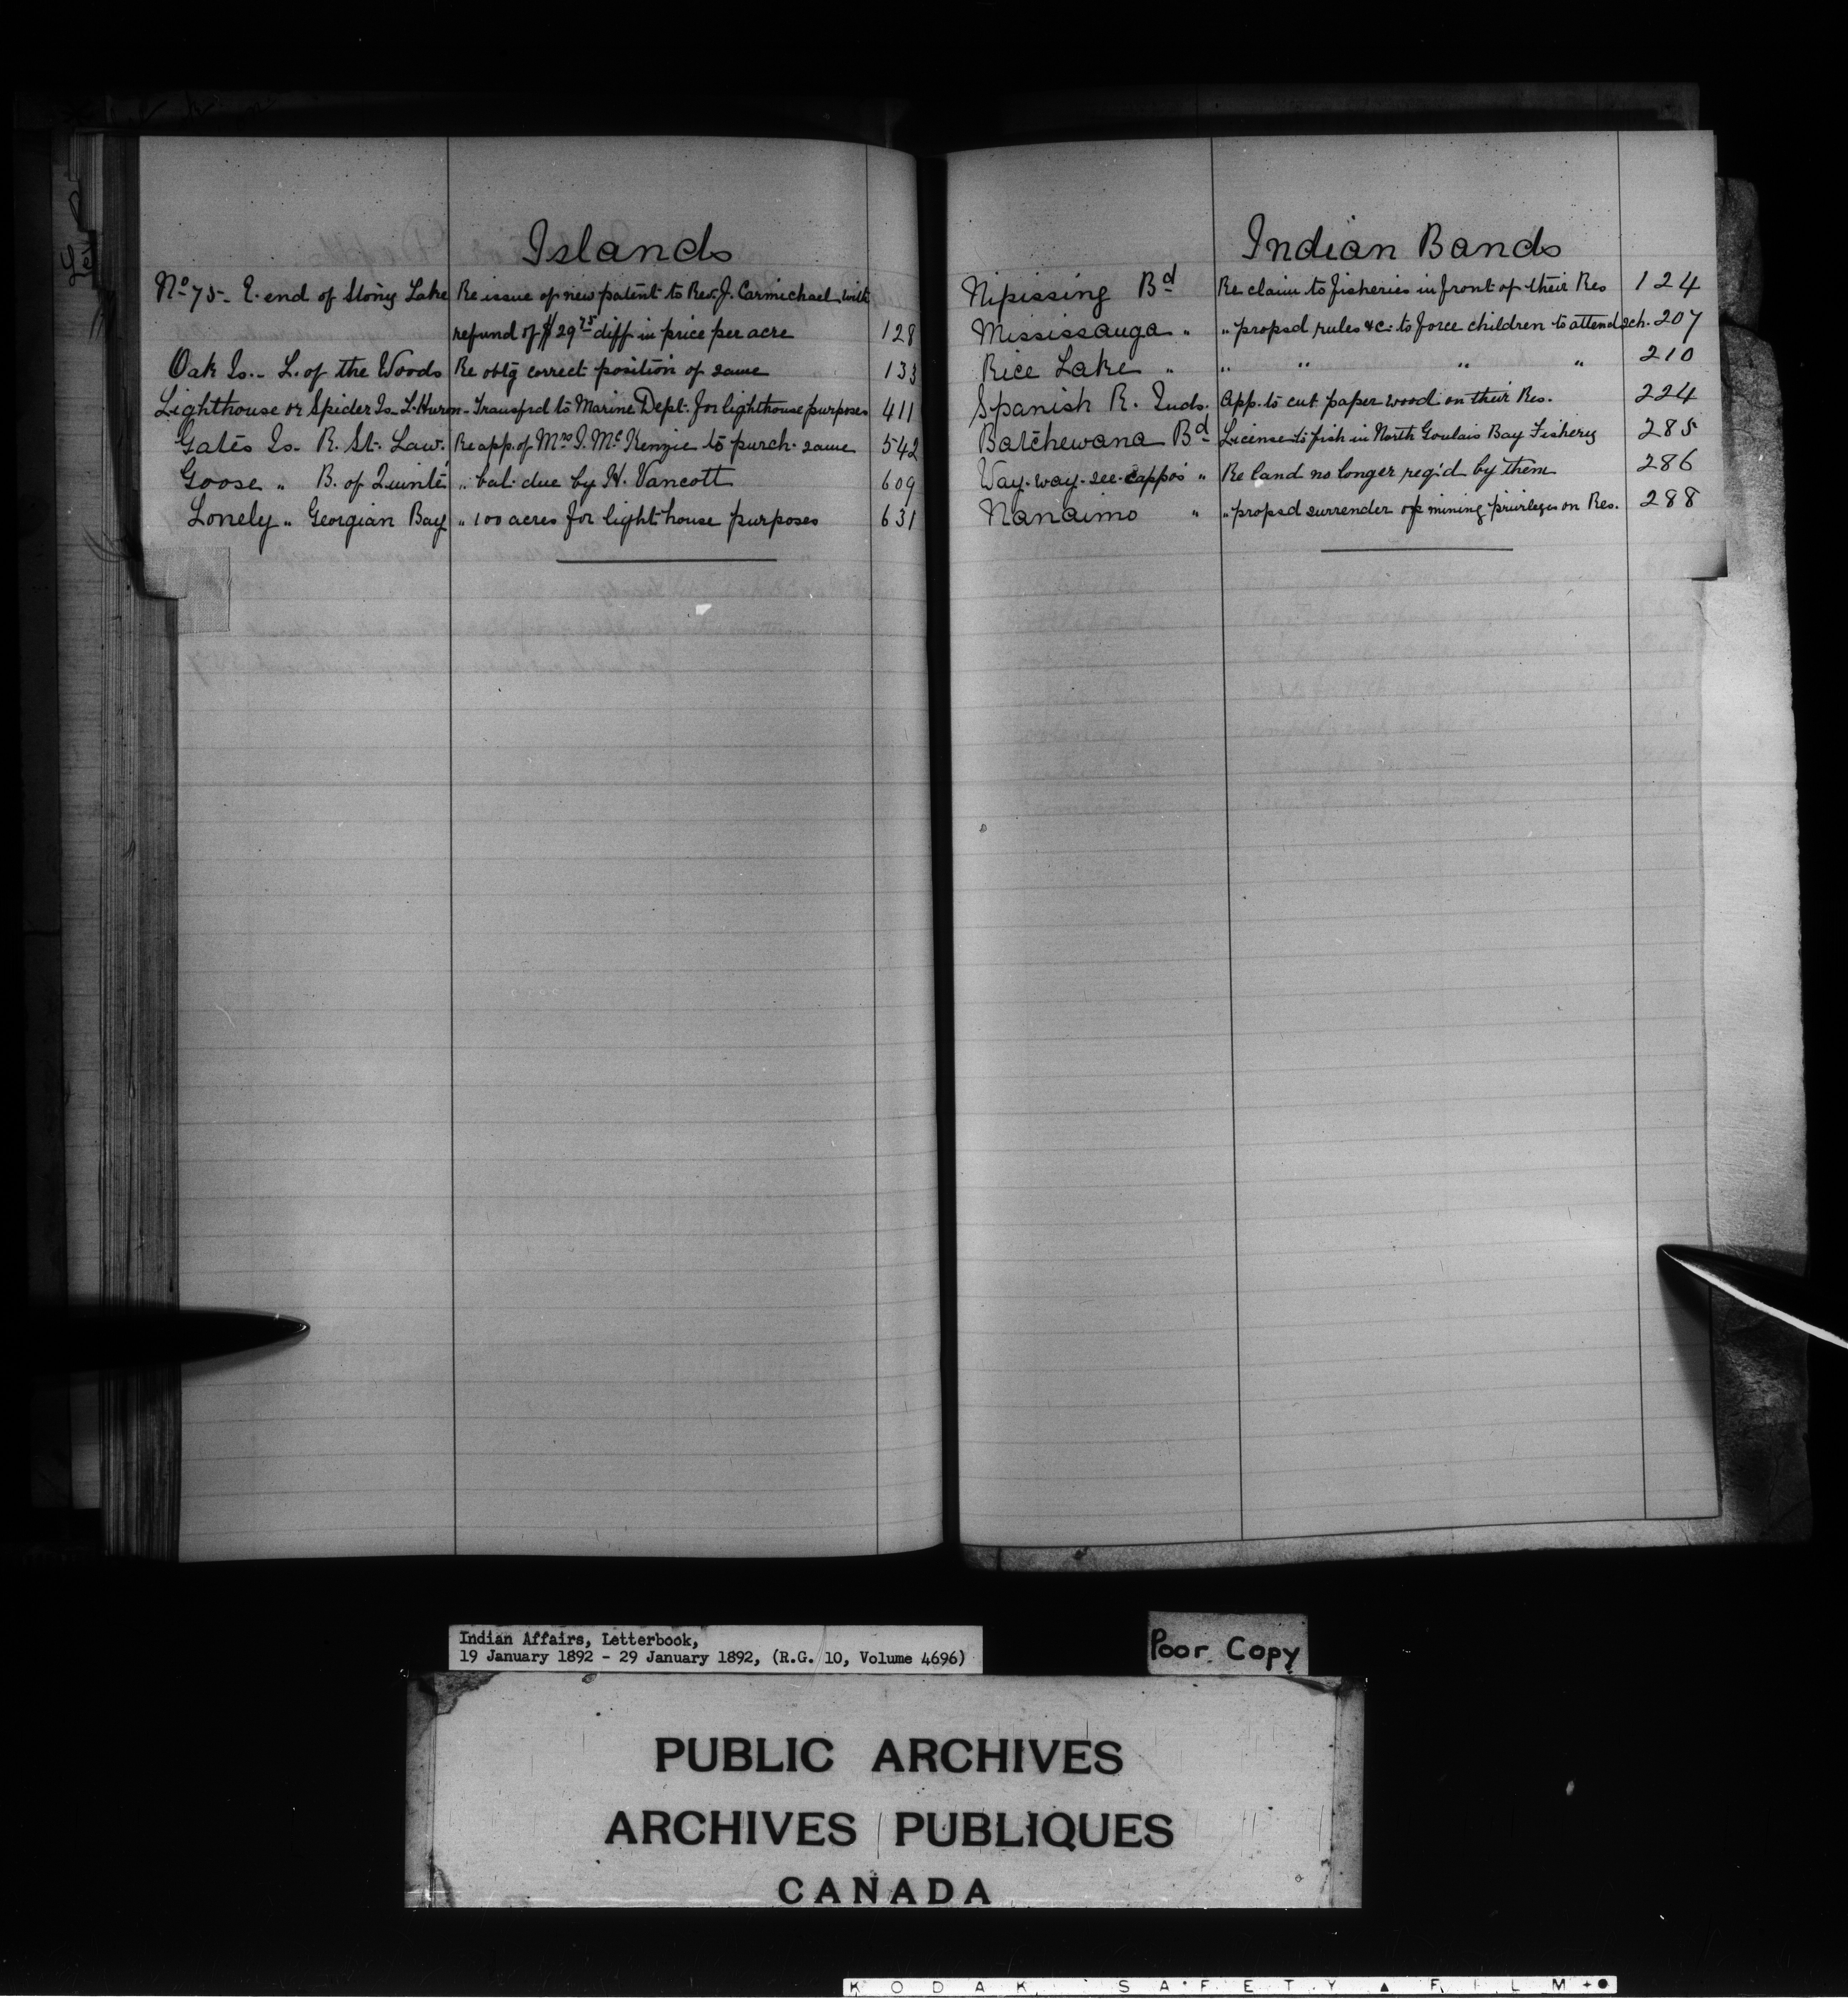 Islands
No 75- E. end of Stony Lake Re issue of new patent to Rev. J. Carmichael with
refund of $29 75 diff in price per acre 128
Oak Is.- L. of the Woods Re obtg correct position of same 133
Lighthouse or Spider Is- L. Huron- Transfrd to Marine Dept. for lighthouse purposes 411
Gates Is- R. St. Law. Re app. of Mrs I. McKenzie to purch. same 542
Goose " B. of Quinté " bal. due by H. Vancott 609
Lonely " Georgian Bay " 100 acres for lighthouse purposes 631
Indian Bands
Nipissing Bd Re claim to fisheries in front of their Res 124
Mississauga " " propsd rules &c. to force children to attend sch. 207
Rice Lake " " " " " 210
Spanish R. Inds. App. to cut paper wood on their Res. 224
Batchewana Bd License to fish in North Goulais Bay Fishery 285
Way-way-see-cappo's " Re land no longer reqd by them 286
Nanaimo " " propsd surrender of mining privileges on Res. 288
Indian Affairs, Letterbook,
19 January 1892 - 29 January 1892, (R.G. 10, Volume 4696)
Poor Copy
PUBLIC ARCHIVES
ARCHIVES PUBLIQUES
CANADA
KODAK SAFETY ▲ FILM